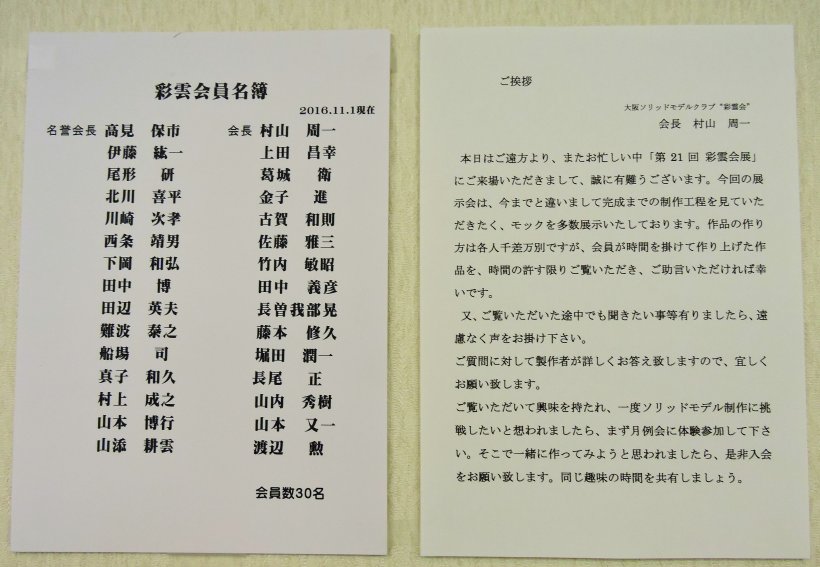 彩雲会員名簿
2016.11.1現在
名誉会長 高見 保市 会長 村山 周一
伊藤 紘一 上田 昌幸
尾形 研 葛城 衛
北川 喜平 金子 進
川崎 次孝 古賀 和則
西条 靖男 佐藤 雅三
下岡 和弘 竹内 敏昭
田中 博 田中 義彦
田辺 英夫 長曽我部晃
難波 泰之 藤本 修久
船場 司 堀田 潤一
真子 和久 長尾 正
村上 成之 山内 秀樹
山本 博行 山本 又一
山添 耕雲 渡辺 勲
会員数30名
ご挨拶
大阪ソリッドモデルクラブ “彩雲会”
会長 村山 周一
本日はご遠方より、またお忙しい中「第 21 回 彩雲会展」
にご来場いただきまして、誠に有難うございます。今回の展
示会は、今までと違いまして完成までの制作工程を見ていた
だきたく、モックを多数展示いたしております。作品の作り
方は各人千差万別ですが、会員が時間を掛けて作り上げた作
品を、時間の許す限りご覧いただき、ご助言いただければ幸
いです。
又、ご覧いただいた途中でも聞きたい事等有りましたら、遠
慮なく声をお掛け下さい。
ご質問に対して製作者が詳しくお答え致しますので、宜しく
お願い致します。
ご覧いただいて興味を持たれ、一度ソリッドモデル制作に挑
戦したいと想われましたら、まず月例会に体験参加して下さ
い。そこで一緒に作ってみようと思われましたら、是非入会
をお願い致します。同じ趣味の時間を共有しましょう。